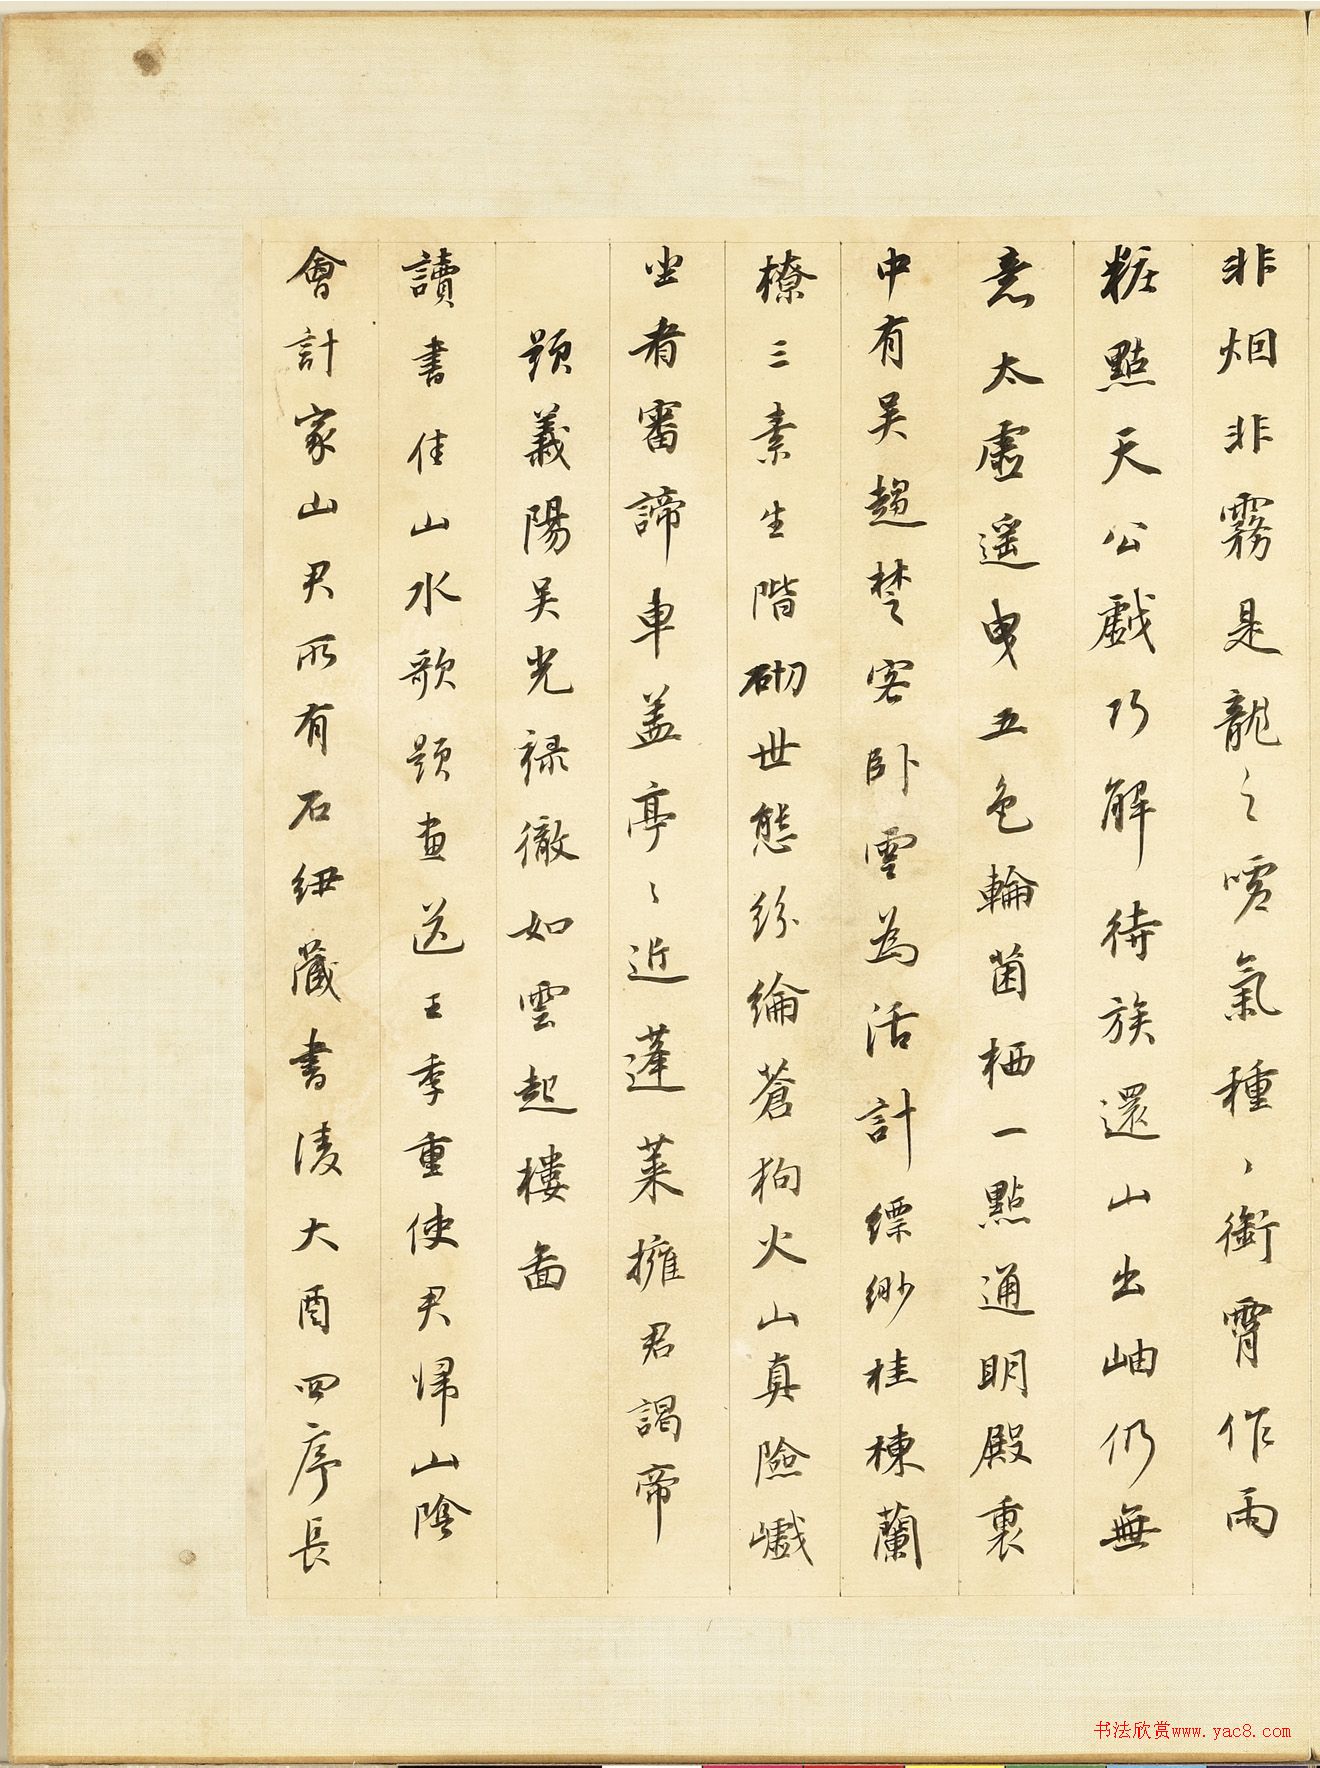 非烟非霧是龍之噓氣種、銜霄作雨
粧點天公戲巧解待族還山出岫仍無
意太虛遥曳五色輪菌栖一點通明殿裏
中有吴趨楚客卧雲為活計縹緲桂棟蘭
橑三素生階砌世態紛綸蒼狗火山真險巇
坐者審諦車盖亭〻近蓬萊擁君謁帝
題義陽吴光禄徹如雲起樓圖
讀書佳山水歌題畫送王季重使君歸山陰
會計家山君所有石紐藏書凌大酉四序長
书法欣赏www.yac8.com